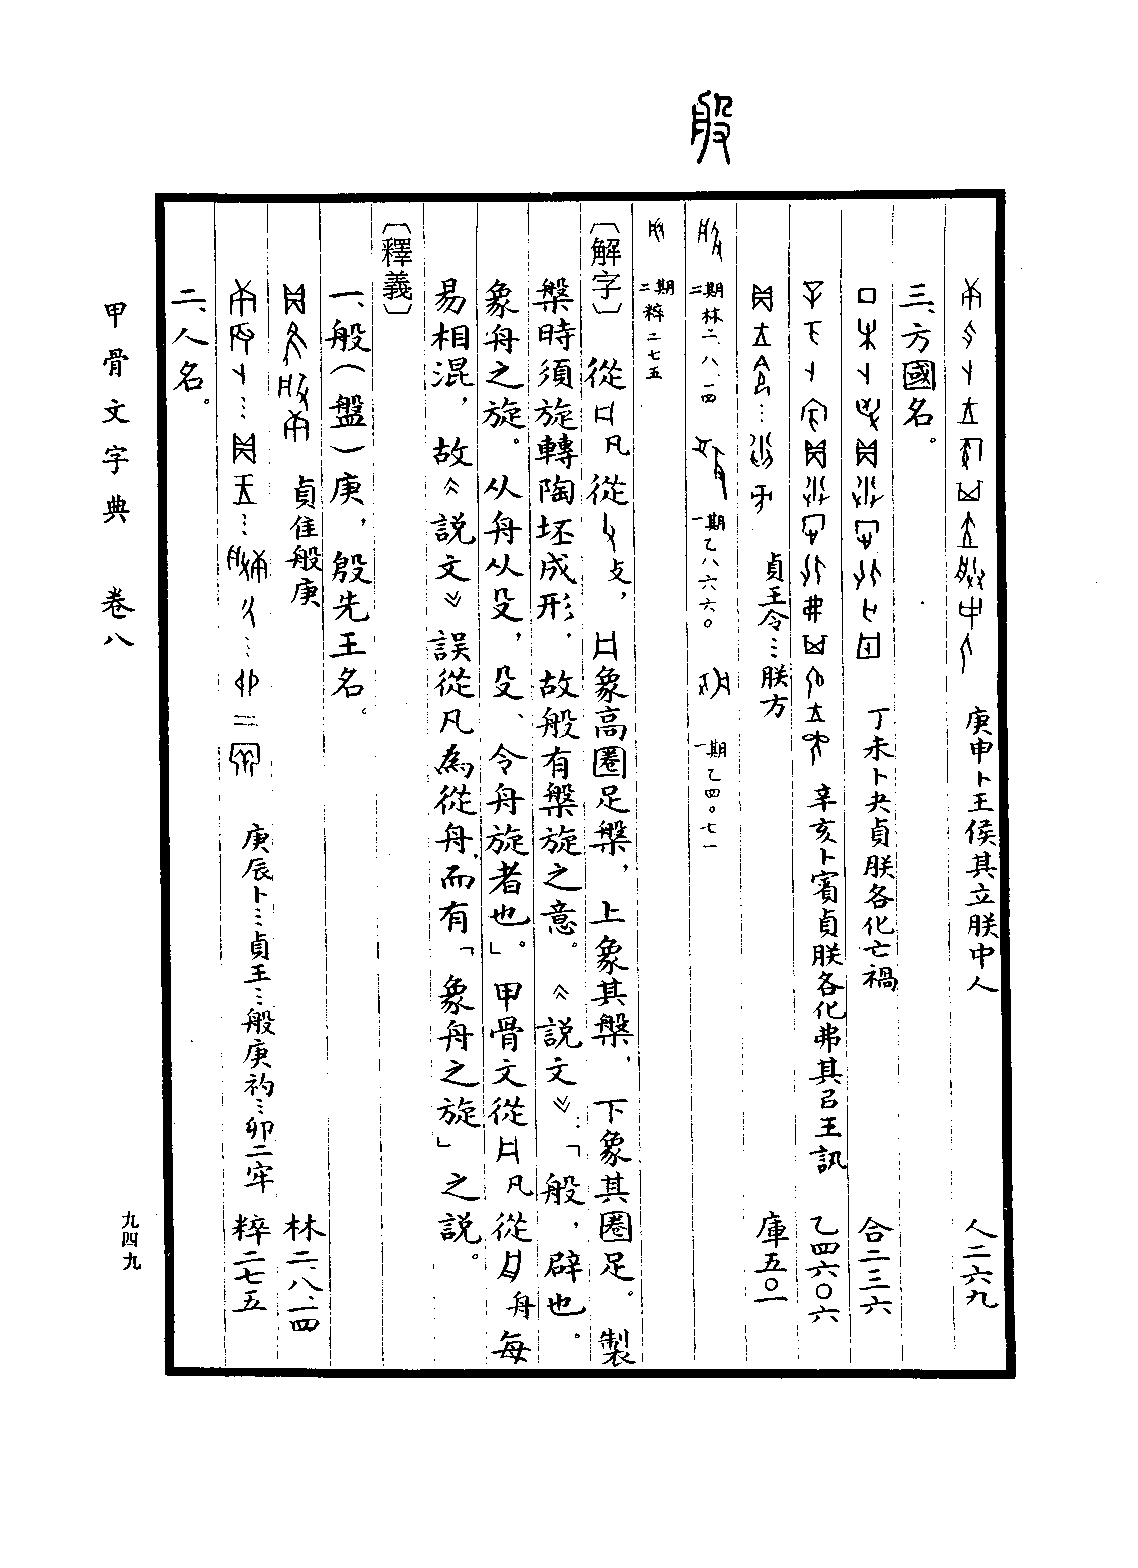 般
庚申卜王侯其立朕中人 人二六九
三、方國名。
丁未卜夬貞朕各化亡禍 合二三六
辛亥卜賓貞朕各化弗其㠯王訊 乙四六〇六
貞王令…朕方 庫五〇一
二期林二、八、一四 一期乙八六六〇 一期乙四〇七一
二期粹二七五
〔解字〕 從凡從攴，象高圈足槃，上象其槃，下象其圈足。製
槃時須旋轉陶坯成形，故般有槃旋之意。《說文》：「般，辟也。
象舟之旋。从舟从殳，殳、令舟旋者也。」甲骨文從凡從舟每
易相混，故《說文》誤從凡為從舟，而有「象舟之旋」之說。
〔釋義〕
一、般（盤）庚，殷先王名。
貞隹般庚 林二、八、一四
庚辰卜…貞王…般庚礿…卯二牢 粹二七五
二、人名。
甲骨文字典 卷八
九四九